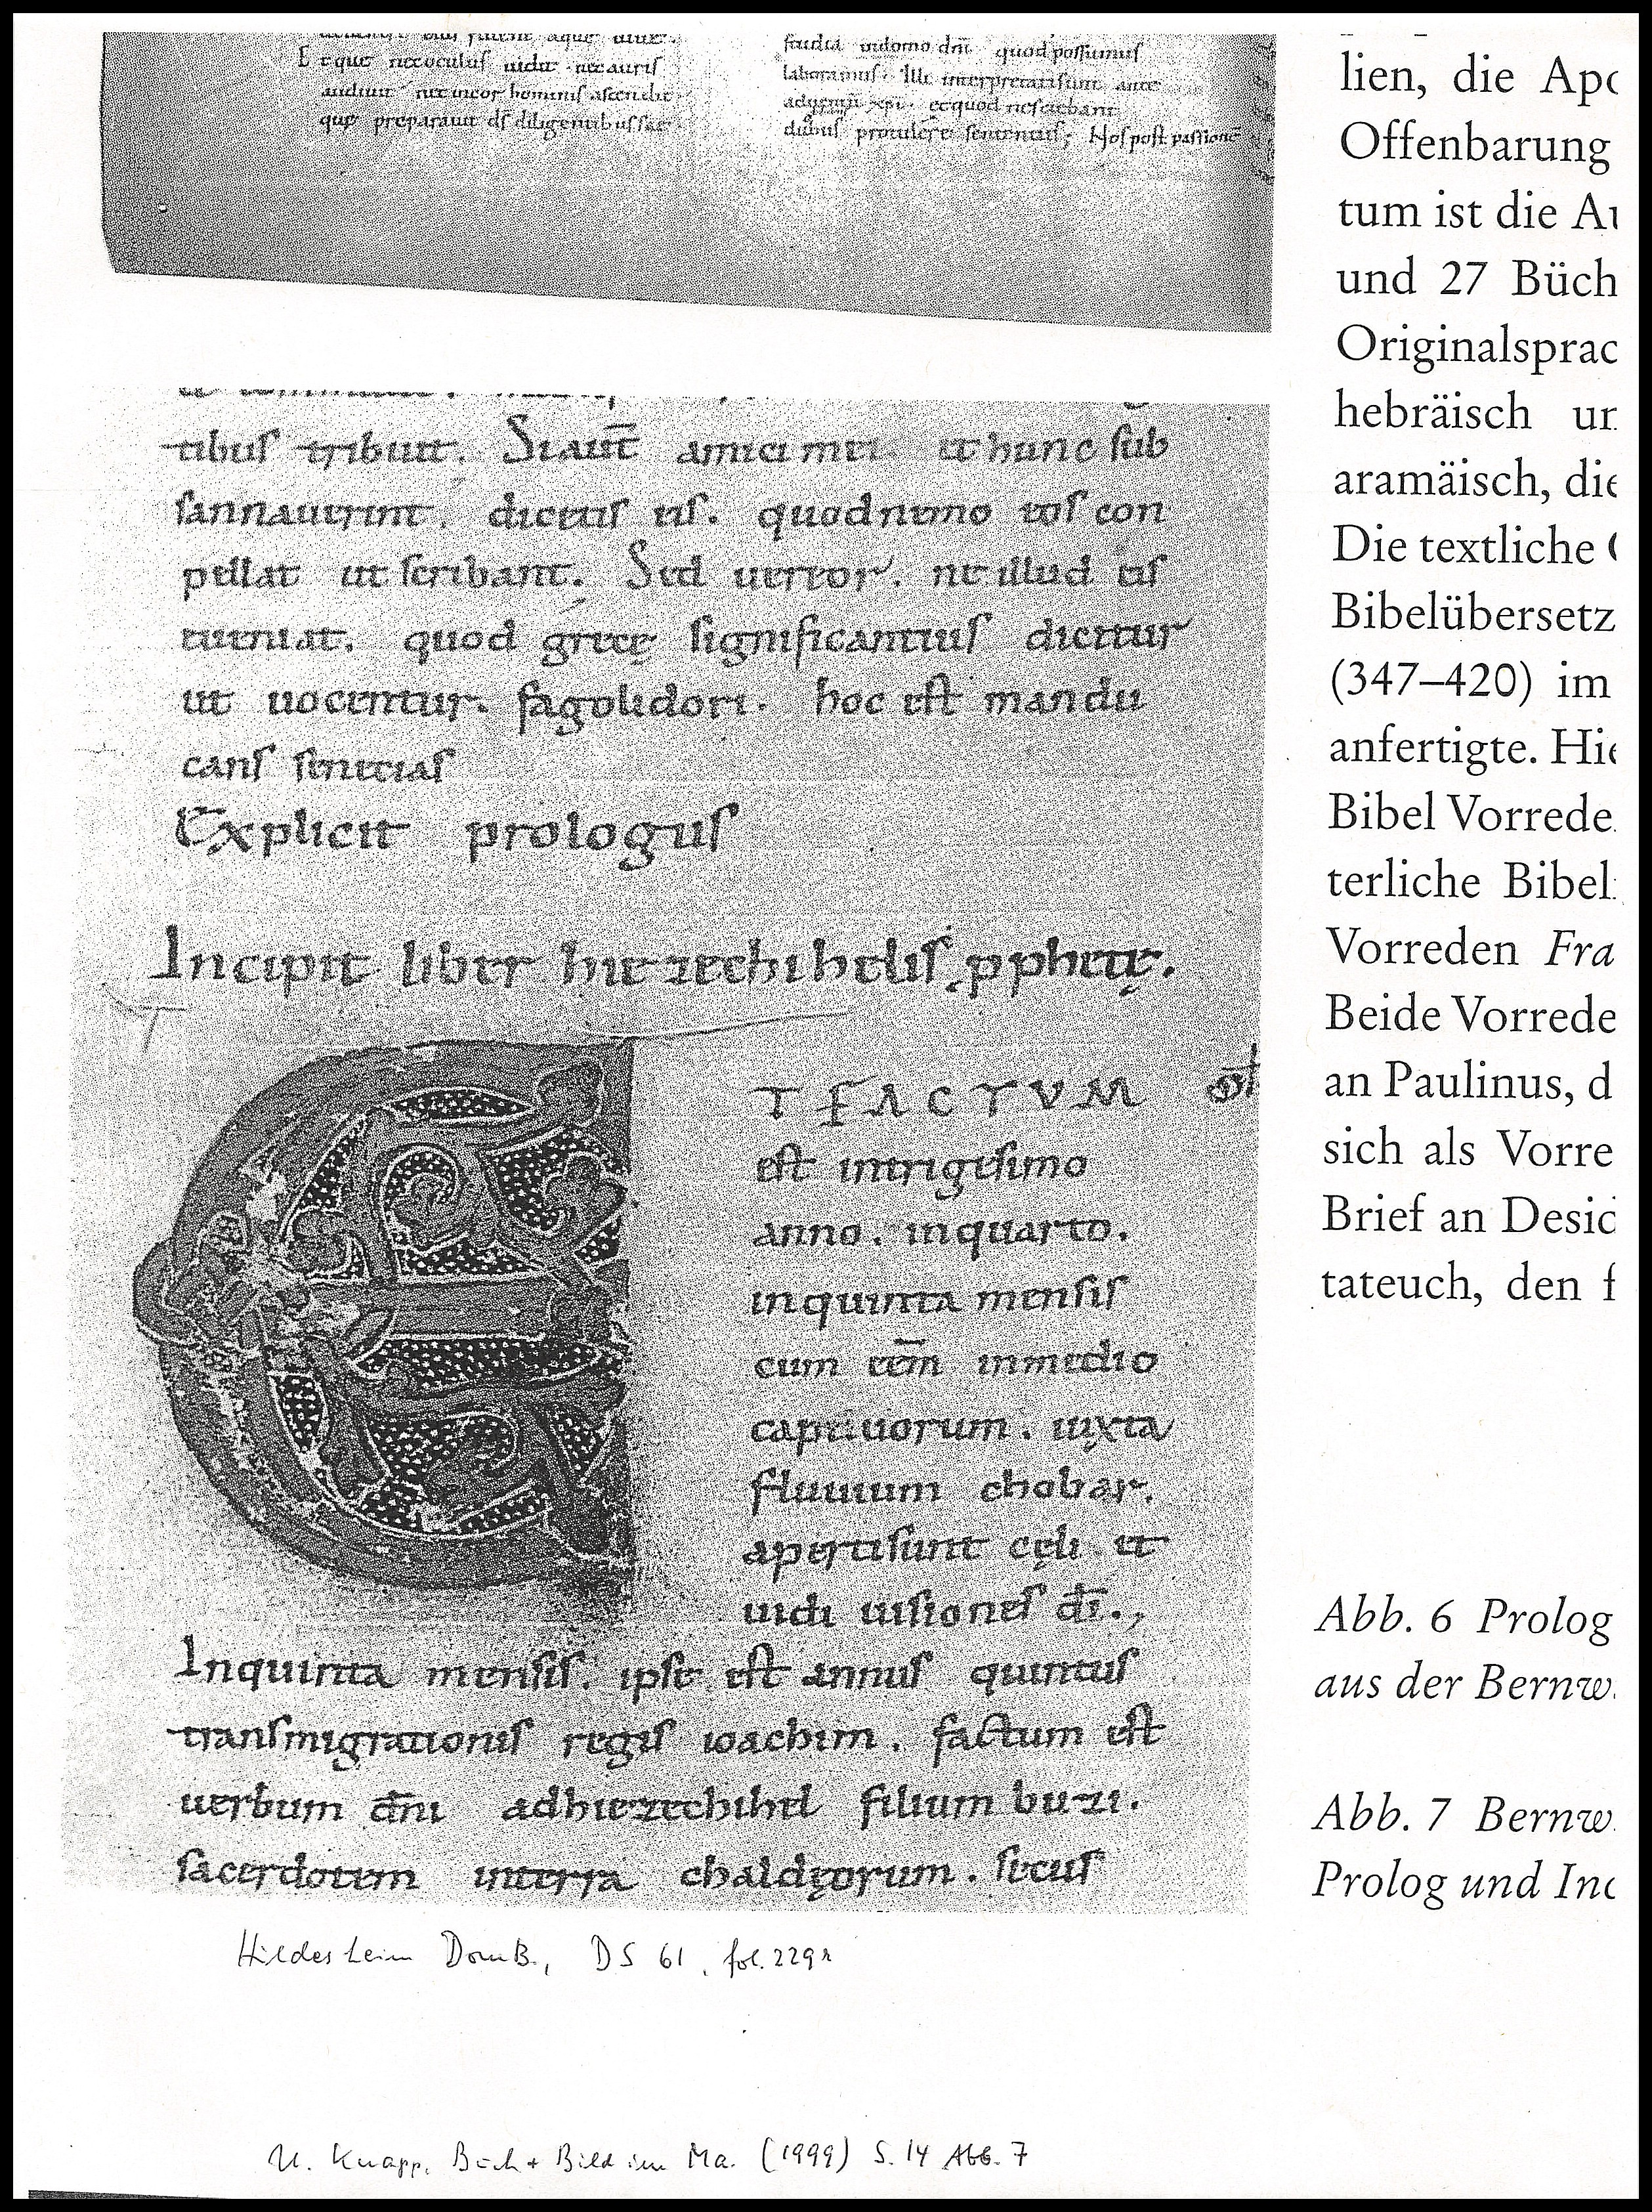 Et que nec oculus uidit nec auris
audiuit nec in cor hominis ascendit
quę preparauit ds̄ diligentibus se
studia in domo dnī quod possumus
laboramus. Illi interpretati sunt ante
aduentū xp̄i. et quod nesciebant
dubiis protulere sententiis; Nos post passionē
tibus tribuit. Si aut̄ amici mei et hunc sub
sannauerint, dicetis eis. quod nemo uos con
pellat ut scribant. Sed uereor. ne illud eis
eueniat. quod gręcę significantius dicitur
ut uocentur. fagolidori. hoc est mandu
cans senecias
Explicit prologus
Incipit liber hiezechihelis ꝓphetę.
ET FACTUM
est in trigesimo
anno. in quarto.
in quinta mensis
cum eēm in medio
captiuorum. iuxta
fluuium chobar.
aperti sunt cęli et
uidi uisiones dī.,
In quinta mensis. ipse est annus quintus
transmigrationis regis ioachim. factum est
uerbum dn̄i ad hiezechihel filium buzi.
sacerdotem in terra chaldęorum. secus
Hildesheim DomB., DS 61, fol. 229r
U. Knapp, Buch + Bild im Ma. (1999) S. 14 Abb. 7
lien, die Apo
Offenbarung
tum ist die Au
und 27 Büch
Originalsprac
hebräisch un
aramäisch, die
Die textliche
Bibelübersetz
(347–420) im
anfertigte. Hie
Bibel Vorrede
terliche Bibel
Vorreden Fra
Beide Vorrede
an Paulinus, d
sich als Vorre
Brief an Desid
tateuch, den f
Abb. 6 Prolog
aus der Bernw
Abb. 7 Bernw
Prolog und Inc